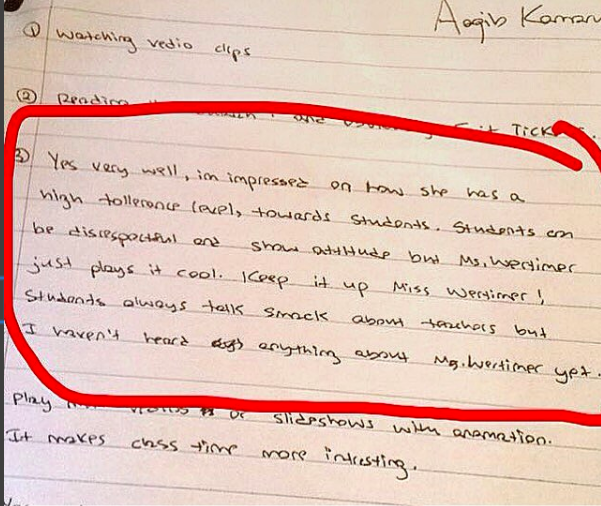 Aaqib Kamran
① Watching vedio clips
② Reading and Exit Tickets.
③ Yes very well, im impressed on how she has a
high tollerance level, towards students. Students can
be disrespectful and show attitude but Ms. Wertimer
just plays it cool. Keep it up Miss Wertimer!
Students always talk smack about teachers but
I haven't heard anything about Ms. Wertimer yet.
Play or slideshows with anamation.
It makes class time more intresting.